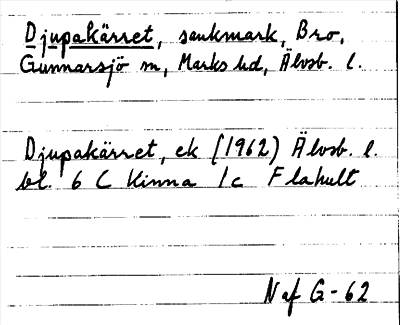 Djupakärret, sankmark, Bro,
Gunnarsjö sn, Marks hd, Älvsb. l.
Djupakärret, ek (1962) Älvsb. l.
bl. 6 C Kinna 1c Flahult
Naf G-62